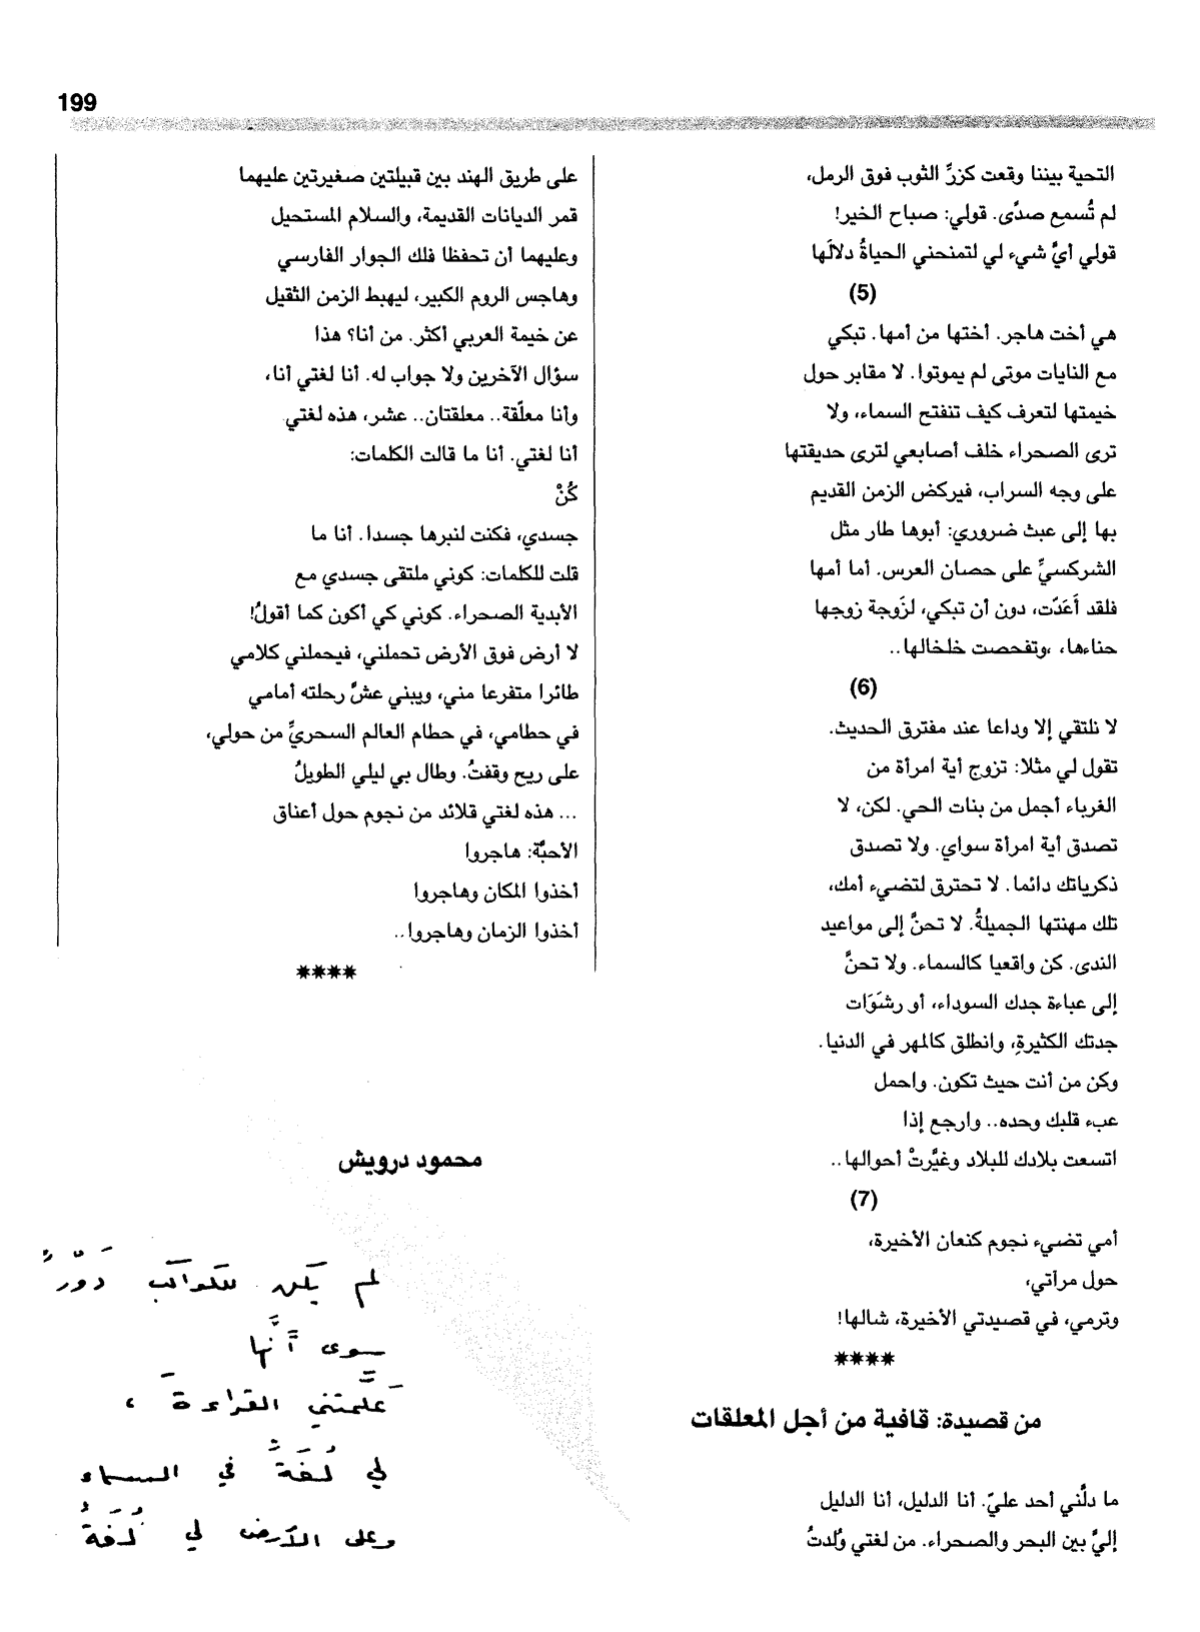 199
التحية بيننا وقعت كزرِّ الثوب فوق الرمل،
لم تُسمع صدًى. قولي: صباح الخير!
قولي أيَّ شيء لي لتمنحني الحياةُ دلالَها
(5)
هي أخت هاجر. أختها من أمها. تبكي
مع النايات موتى لم يموتوا. لا مقابر حول
خيمتها لتعرف كيف تنفتح السماء، ولا
ترى الصحراء خلف أصابعي لترى حديقتها
على وجه السراب، فيركض الزمن القديم
بها إلى عبث ضروري: أبوها طار مثل
الشركسيِّ على حصان العرس. أما أمها
فلقد أَعَدّت، دون أن تبكي، لزَوجة زوجها
حناءها، ،وتفحصت خلخالها..
(6)
لا نلتقي إلا وداعا عند مفترق الحديث.
تقول لي مثلا: تزوج أية امرأة من
الغرباء أجمل من بنات الحي. لكن، لا
تصدق أية امرأة سواي. ولا تصدق
ذكرياتك دائما. لا تحترق لتضيء أمك،
تلك مهنتها الجميلةُ. لا تحنَّ إلى مواعيد
الندى. كن واقعيا كالسماء. ولا تحنَّ
إلى عباءة جدك السوداء، أو رشَوَات
جدتك الكثيرةِ، وانطلق كالمهر في الدنيا.
وكن من أنت حيث تكون. واحمل
عبء قلبك وحده.. وارجع إذا
اتسعت بلادك للبلاد وغيَّرتْ أحوالها..
(7)
أمي تضيء نجوم كنعان الأخيرة،
حول مرآتي،
وترمي، في قصيدتي الأخيرة، شالها!
****
من قصيدة: قافية من أجل المعلقات
ما دلَّني أحد عليّ. أنا الدليل، أنا الدليل
إليَّ بين البحر والصحراء. من لغتي وُلدتُ
على طريق الهند بين قبيلتين صغيرتين عليهما
قمر الديانات القديمة، والسلام المستحيل
وعليهما أن تحفظا فلك الجوار الفارسي
وهاجس الروم الكبير، ليهبط الزمن الثقيل
عن خيمة العربي أكثر. من أنا؟ هذا
سؤال الآخرين ولا جواب له. أنا لغتي أنا،
وأنا معلّقة.. معلقتان.. عشر، هذه لغتي
أنا لغتي. أنا ما قالت الكلمات:
كُنْ
جسدي، فكنت لنبرها جسدا. أنا ما
قلت للكلمات: كوني ملتقى جسدي مع
الأبدية الصحراء. كوني كي أكون كما أقولُ!
لا أرض فوق الأرض تحملني، فيحملني كلامي
طائرا متفرعا مني، ويبني عشَّ رحلته أمامي
في حطامي، في حطام العالم السحريِّ من حولي،
على ريح وقفتُ. وطال بي ليلي الطويلُ
... هذه لغتي قلائد من نجوم حول أعناق
الأحبَّة: هاجروا
أخذوا المكان وهاجروا
أخذوا الزمان وهاجروا..
****
محمود درويش
لم يَكُن للكواكب دَوْرٌ
سوى أَنَّها
عَلَّمتني القراءةَ ،
لي لُغَةٌ في السماء
وعلى الأرض لي لُغَةٌ